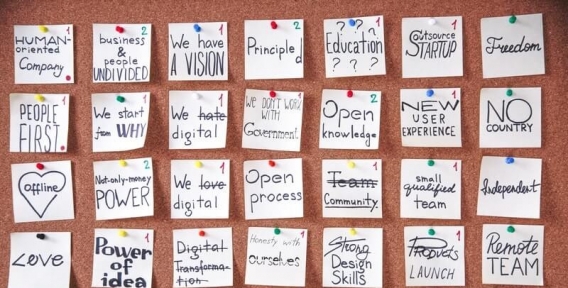 HUMAN-
oriented
Company
1
business
&
people
UNDIVIDED
2
We have
A VISION
1
Principled
2
? ? ?
Education
? ? ?
1
Outsource
STARTUP
1
Freedom
PEOPLE
FIRST.
1
We start
from WHY
1
We hate
digital
1
WE DON'T WORK
WITH
Government
1
Open
knowledge
2
NEW
USER
EXPERIENCE
1
NO
COUNTRY
offline
Not-only-money
POWER
2
We love
digital
1
Open
process
1
Team
Community
1
small
qualified
team
1
Independent
Love
Power
of
idea
1
Digital
Transforma-
tion
1
Honesty with
ourselves
1
Strong
Design
Skills
1
Products
LAUNCH
1
Remote
TEAM